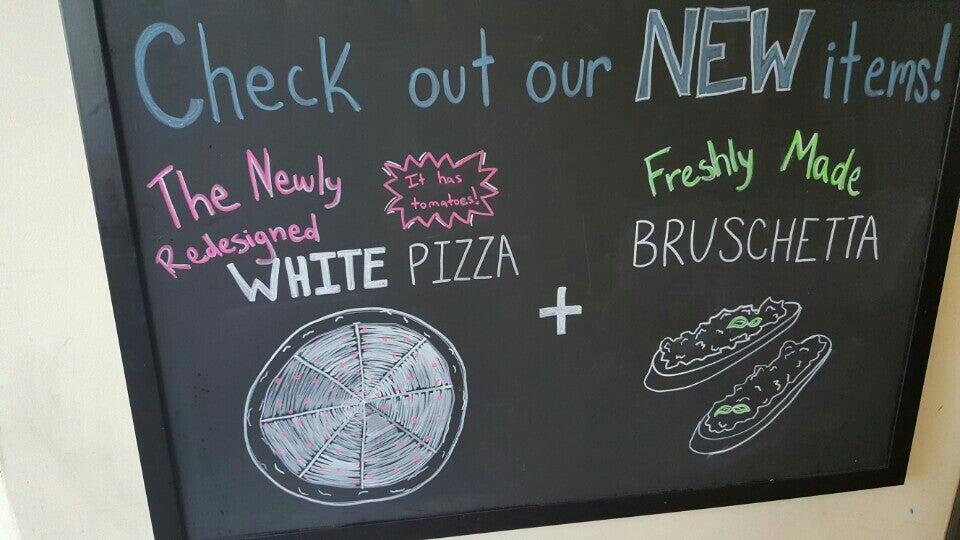 Check out our NEW items!
The Newly
Redesigned
WHITE PIZZA
It has
tomatoes!
+
Freshly Made
BRUSCHETTA